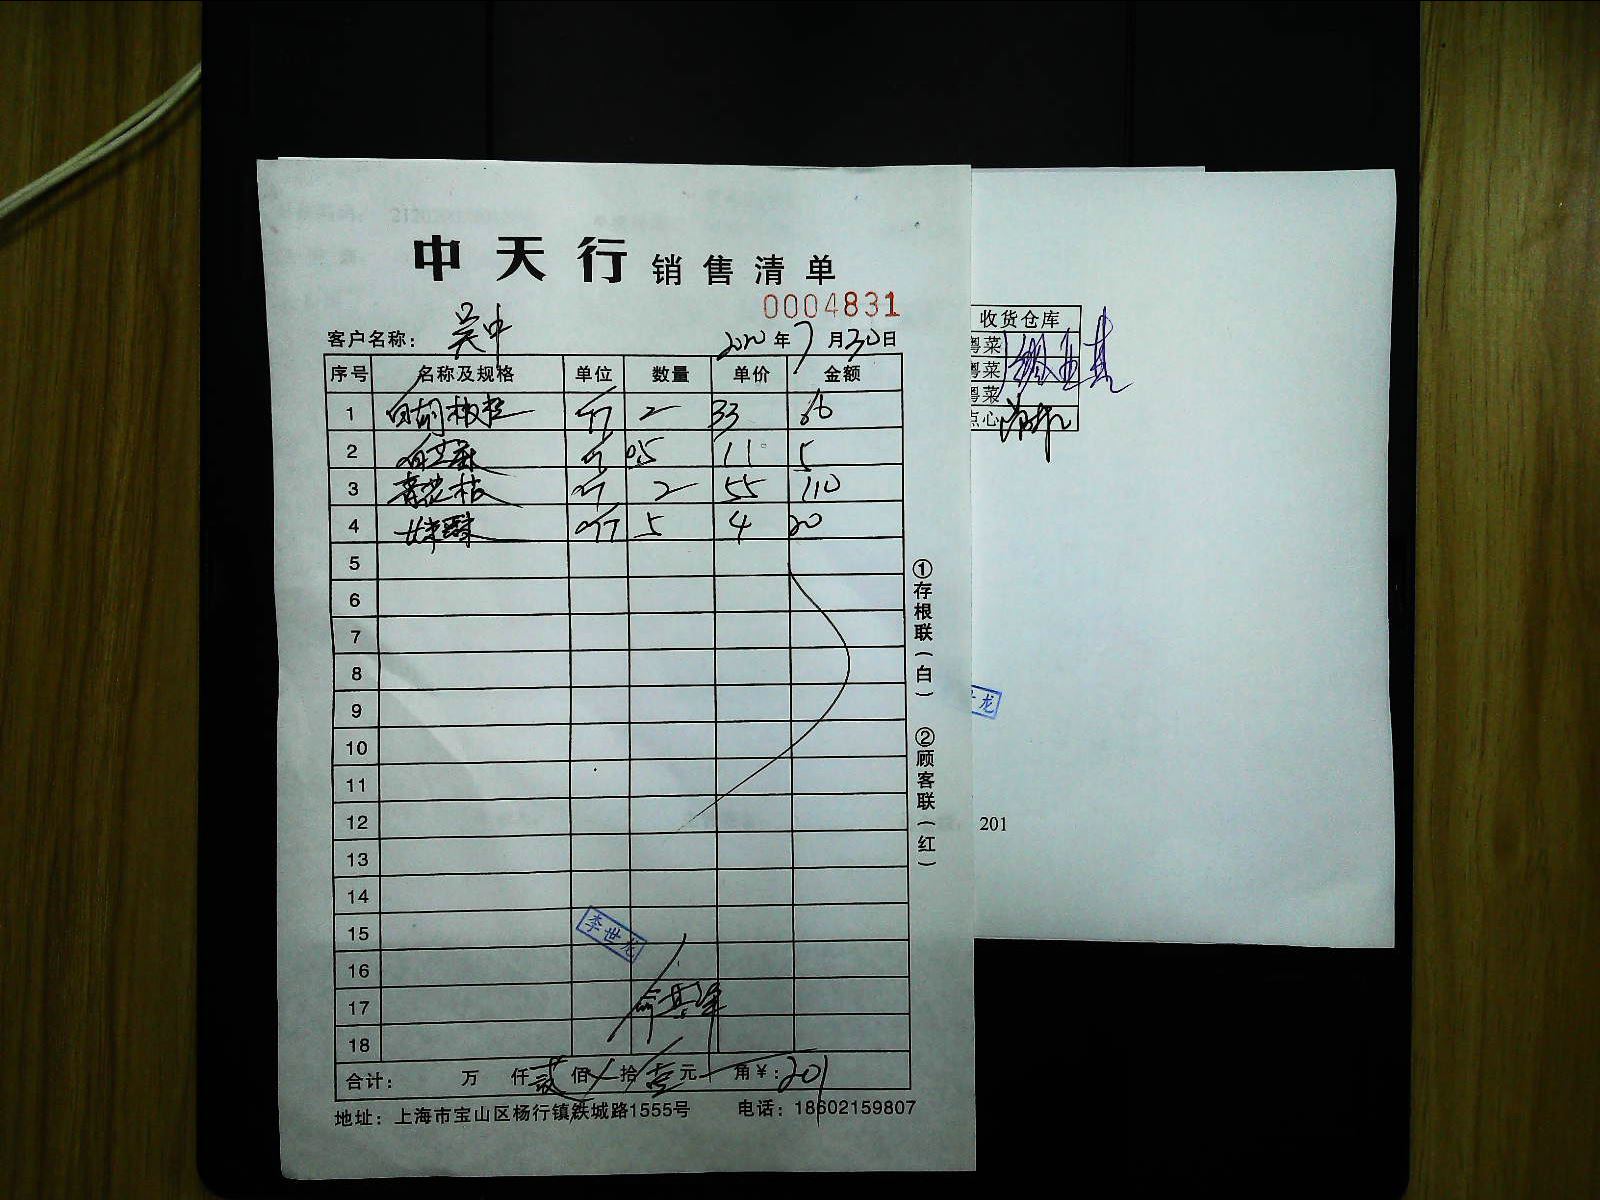 中天行 销售清单
0004831
客户名称： 吴中 2020年7月30日
序号 名称及规格 单位 数量 单价 金额
1 白胡椒粒 斤 2 33 66
2 白芝麻 斤 0.5 11 5
3 青花椒 斤 2 55 110
4 斤 5 4 20
5
6
7
8
9
10
11
12
13
14
15
16
17
18
李世龙
合计： 万 仟 贰佰 拾 壹元 角￥：201
地址：上海市宝山区杨行镇铁城路1555号 电话：18602159807
①存根联（白） ②顾客联（红）
收货仓库
粤菜
粤菜
粤菜
点心
龙
201